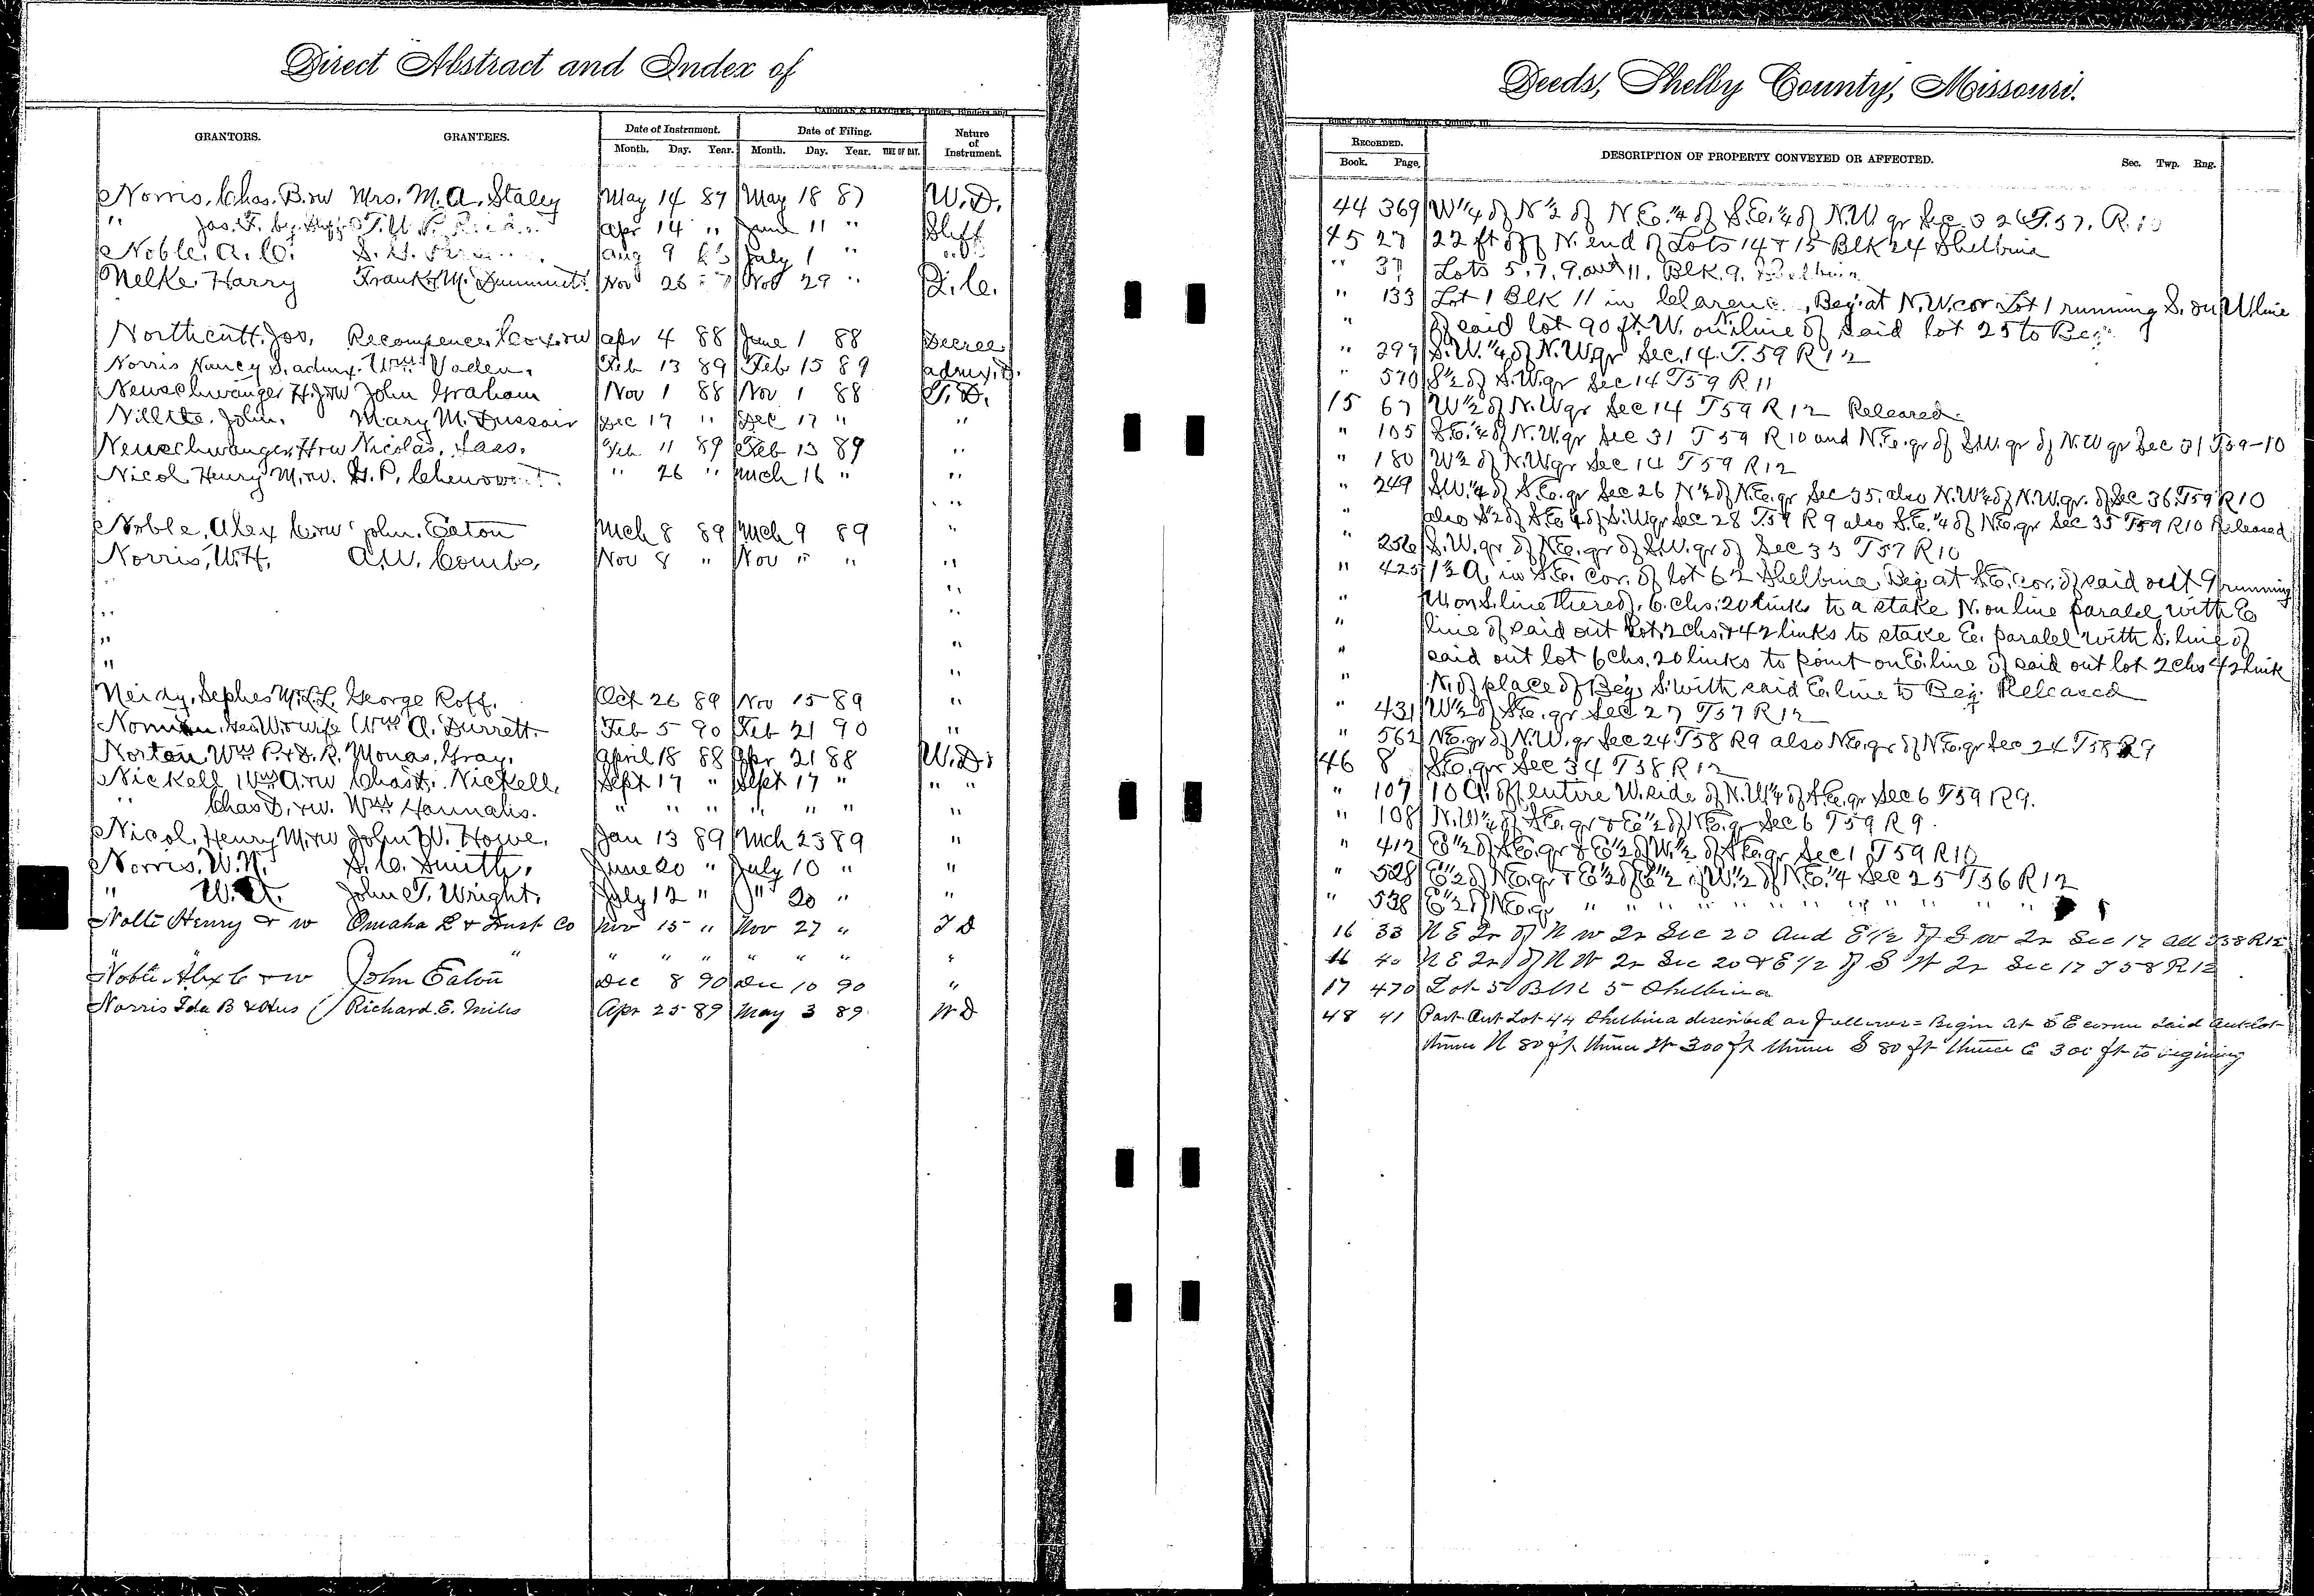 Direct Abstract and Index of
CADOGAN & HATCHER, Printers, Binders and
GRANTORS. GRANTEES. Date of Instrument. Date of Filing. Nature of Instrument.
Month. Day. Year. Month. Day. Year. TIME OF DAY.
Norris, Chas. B. w Mrs. M. A. Staley May 14 87 May 18 87 W. D.
" Jas. F. by Shff apr 14 " June 11 " Shff
Noble. A. C. aug 9 July 1 "
Nelke Harry Frank M. Dimmitt Nov 26 Nov 29 " Q. C.
Northcutt. Jos. Recompence Cox. w apr 4 88 June 1 88 Decree
Norris Nancy S. admx. Wm Vaden. Feb 13 89 Feb 15 89 admx. D.
Neuschwanger H. J. w John Graham Nov 1 88 Nov 1 88 T. D.
John. Mary M. Dussair Dec 17 " Dec 17 " "
Neuschwanger, H w Nicolas, Sass. Feb 11 89 Feb 13 89 "
Nicol Henry M. w. G. P. Chenowert " 26 " Mch 16 " "
"
Noble, Alex C. w John. Eaton Mch 8 89 Mch 9 89 "
Norris, W. H. A. W. Combs, Nov 8 " Nov " " "
"
" "
" "
" "
Neidy, Sephes M. L. L. George Roff. Oct 26 89 Nov 15 89 "
Norman. Geo W. & wife Wm A. Durrett. Feb 5 90 Feb 21 90 "
Norton, Wm P. & S. R. Monas, Gray. April 18 88 Apr 21 88 W. D.
Nickell Wm A. w Chas. Nickell, Sept 17 " Sept 17 " " "
" Chas D. & w. Wm Hannalis. " " " " " " "
Nicol, Henry M. w John W. Howe. Jan 13 89 Mch 23 89 "
Norris. W. N. S. C. Smith, June 20 " July 10 " "
" W. John T. Wright, July 12 " " 20 " "
Nolte Henry & w Omaha L & Trust Co Nov 15 " Nov 27 " T D
" " " " " " " " "
Noble Alex C & w John Eaton Dec 8 90 Dec 10 90 "
Norris Ida B & Hus Richard. E. Miles Apr 25 89 May 3 89. W D
Deeds, Shelby County, Missouri.
RECORDED. DESCRIPTION OF PROPERTY CONVEYED OR AFFECTED. Sec. Twp. Rng.
Book. Page.
44 369 W 1/4 of N 1/2 of N. E. 1/4 of S. E. 1/4 of N. W qr Sec. 3 T. 57. R. 10
45 27 22 ft off N. end of Lots 14 & 15 BLK 24 Shelbina
" 37 Lots 5. 7. 9. and 11. BLK. 9. Shelbina
" 133 Lot 1 Blk 11 in Clarence, Beg. at N. W. cor Lot 1 running S. on W line
" of said lot 90 ft. W. on N. line of said lot 25 to Beg.
" 297 S. W. 1/4 of N. W qr Sec. 14. T. 59 R 12
" 570 S 1/2 of S. W. qr Sec 14 T 59 R. 11
15 67 W 1/2 of N. W qr Sec 14 T 59 R 12 Released.
" 105 S. E. 1/4 of N. W. qr Sec 31 T 59 R 10 and N. E. qr of S. W. qr of N. W qr Sec 31 T 59-10
" 180 W 1/2 of N. W. qr Sec 14 T 59 R 12
" 249 S. W. 1/4 of S. E. qr Sec 26 N 1/2 of N. E. qr Sec 35. also N. W 1/4 of N. W. qr. of Sec 36. T 59 R 10
" also S 1/2 of S. E 1/4 of S. W qr Sec 28 T 59 R 9 also S. E. 1/4 of N. E. qr Sec 35 T 59 R 10 Released
" 256 S. W. qr of N. E. qr of S. W. qr of Sec 33 T 57 R 10
" 425 1 1/2 A. in S. E. Cor. of lot 62 Shelbina, Beg. at S. E. cor. of said out running
" W. on S. line thereof. 6. chs. 20 links to a stake N. on line paralel with E
" line of said out Lot. 2 chs. & 42 links to stake E. paralel with S. line of
" said out lot 6 chs. 20 links to point on E. line of said out lot 2 chs 42 link
" N. of place of Beg. S. with said E. line to Beg. Released
" 431 W 1/2 of S. E. qr Sec 27 T 57 R 12
" 562 N. E. qr of N. W. qr Sec 24 T 58 R 9 also N. E. qr of N. E. qr Sec 24 T 58 R 9
46 8 S. E. qr Sec 34 T 58 R 12
" 107 10 A. off entire W. side of N. W 1/4 of S. E. qr Sec 6 T 59 R 9.
" 108 N. W 1/4 of S. E. qr & E 1/2 of N. E. qr Sec 6 T 59 R 9.
" 412 E 1/2 of S. E. qr & E 1/2 of W. 1/2 of S. E. qr Sec 1 T 59 R 10
" 528 E 1/2 of N. E. qr & E 1/2 of E 1/2 of W. 1/2 of N. E. 1/4 Sec 25 T 56 R 12
" 538 E 1/2 of N. E. qr " " " " " " " " " "
16 33 N E Qr of N W Qr Sec 20 And E 1/2 of S W Qr Sec 17 all T 58 R 12
16 40 N E Qr of N W Qr Sec 20 & E 1/2 of S W Qr Sec 17 T 58 R 12
17 470 Lot 5 Blk 5 Shelbina
48 41 Part Out Lot 44 Shelbina described as follows = Begin at S E corner said out lot
thence N 80 ft thence W 300 ft thence S 80 ft thence E 300 ft to begining